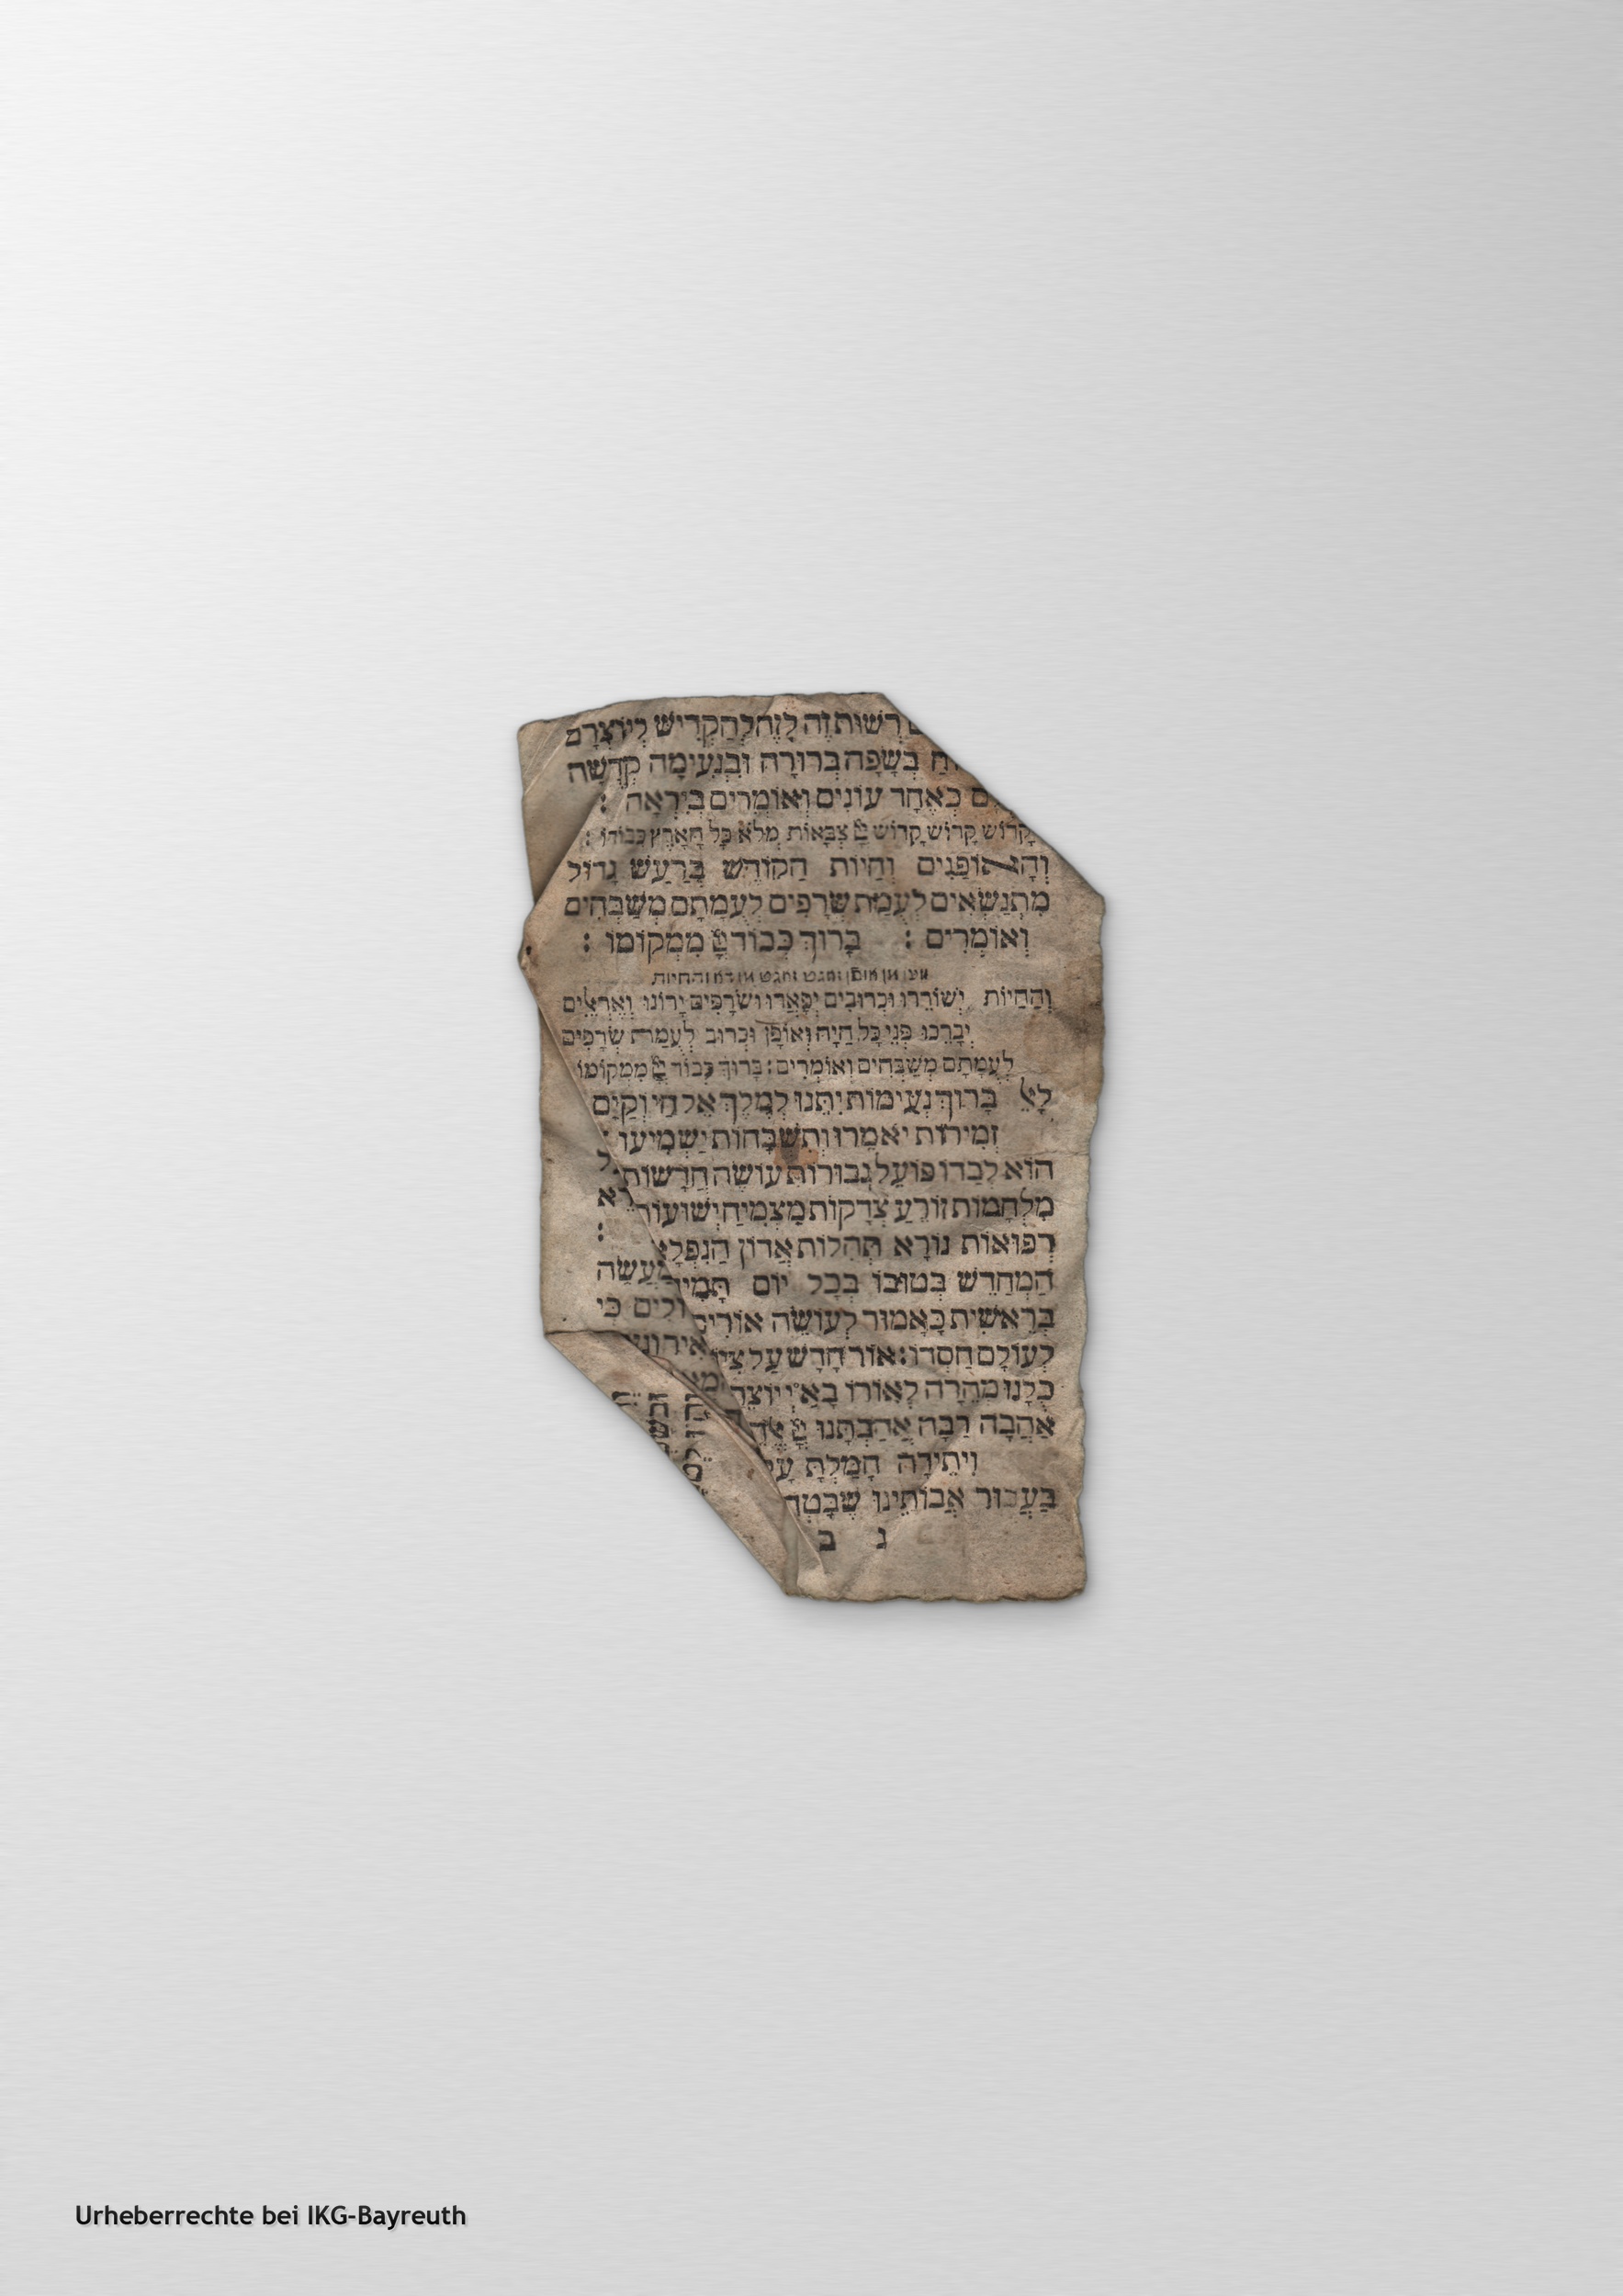 רְשׁוּת זֶה לָזֶה לְהַקְדִישׁ לְיוֹצְרָם
בְּשָׂפָה בְרוּרָה וּבִנְעִימָה קְדֻשָּׁה
כְּאֶחָד עוֹנִים וְאוֹמְרִים בְּיִרְאָה :
קָדוֹשׁ קָדוֹשׁ קָדוֹשׁ צְבָאוֹת מְלֹא כָל הָאָרֶץ כְּבוֹדוֹ :
וְהָאוֹפַנִּים וְחַיּוֹת הַקּוֹדֶשׁ בְּרַעַשׁ גָּדוֹל
מִתְנַשְּׂאִים לְעֻמַּת שְׂרָפִים לְעֻמָּתָם מְשַׁבְּחִים
וְאוֹמְרִים : בָּרוּךְ כְּבוֹד יְיָ מִמְּקוֹמוֹ :
והחיות
וְהַחַיּוֹת יְשׁוֹרֵרוּ וּכְרוּבִים יְפָאֵרוּ וּשְׂרָפִים יָרוֹנּוּ וְאֶרְאֶלִּים
יְבָרֵכוּ פְּנֵי כָּל חַיָּה וְאוֹפָן וּכְרוּב לְעֻמַּת שְׂרָפִים
לְעֻמָּתָם מְשַׁבְּחִים וְאוֹמְרִים : בָּרוּךְ כְּבוֹד יְיָ מִמְּקוֹמוֹ
לָאֵל בָּרוּךְ נְעִימוֹת יִתֵּנוּ לְמֶלֶךְ אֵל חַי וְקַיָּם
זְמִירוֹת יֹאמֵרוּ וְתִשְׁבָּחוֹת יַשְׁמִיעוּ :
הוּא לְבַדּוֹ פּוֹעֵל גְּבוּרוֹת עוֹשֶׂה חֲדָשׁוֹת
מִלְחָמוֹת זוֹרֵעַ צְדָקוֹת מַצְמִיחַ יְשׁוּעוֹת
רְפוּאוֹת נוֹרָא תְהִלּוֹת אֲדוֹן הַנִּפְלָא
הַמְחַדֵּשׁ בְּטוּבוֹ בְּכָל יוֹם תָּמִיד מַעֲשֵׂה
בְרֵאשִׁית כָּאָמוּר לְעוֹשֵׂה אוֹרִים
לְעוֹלָם חַסְדּוֹ : אוֹר חָדָשׁ עַל
כֻלָּנוּ מְהֵרָה לְאוֹרוֹ בָּאַ״יְ יוֹצֵר
אַהֲבָה רַבָּה אֲהַבְתָּנוּ יְיָ
וִיתֵירָה חָמַלְתָּ
בַּעֲבוּר אֲבוֹתֵינוּ שֶׁבָּטְ
ג ב
Urheberrechte bei IKG-Bayreuth